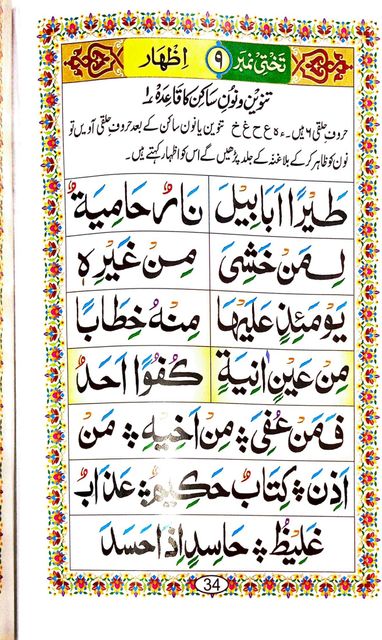 تختی نمبر ۹ اِظْهَار
تنوین و نون ساکن کا قاعدہ ۱؎
حروفِ حلقی ۶ ہیں۔ ء ہ ع ح غ خ تنوین یا نون ساکن کے بعد حروف حلقی آویں تو
نون کو ظاہر کر کے بلا غنہ کے جلد پڑھیں گے اس کو اظہار کہتے ہیں۔
طَيْرًا اَبَابِيْلَ نَارٌ حَامِيَةٌ
لِمَنْ خَشِىَ مِنْ غَيْرِهٖ
يَوْمَئِذٍ عَلَيْهَا مِنْهُ خِطَابًا
مِنْ عَيْنٍ اٰنِيَةٍ كُفُوًا اَحَدٌ
فَمَنْ عُفِىَ ۞ مِنْ اَخِيْهِ ۞ مَنْ
اَذِنَ ۞ كِتَابٌ حَكِيْمٌ ۞ عَذَابٌ
غَلِيْظٌ ۞ حَاسِدٍ اِذَا حَسَدَ
34